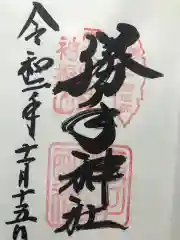 勝手神社
令和二年十一月十五日